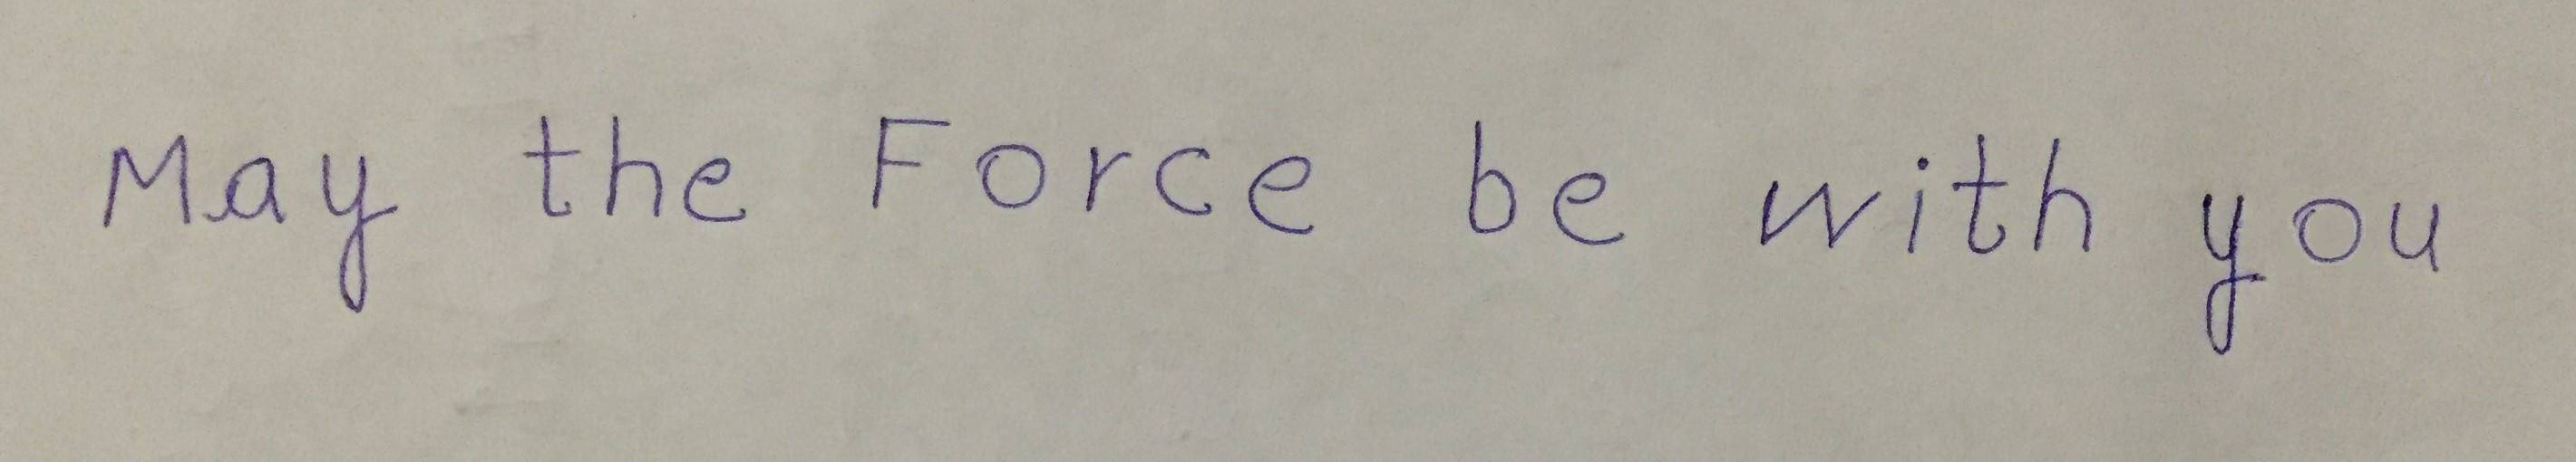 May the Force be with you